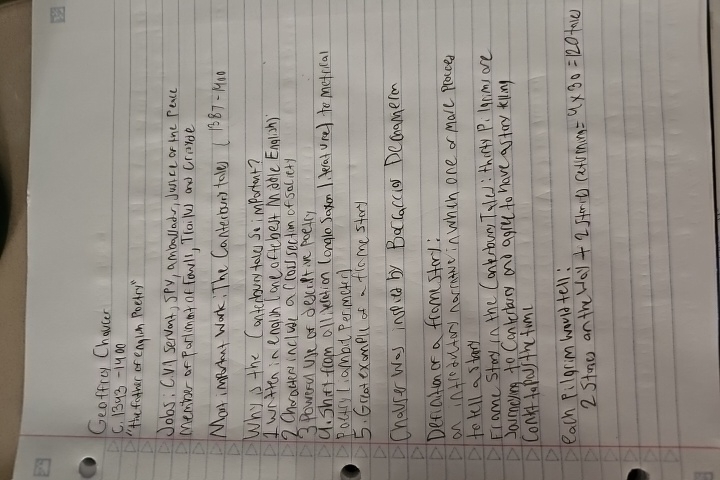 Geoffroy Chaucer
c. 1343 - 1400
"the Father of english Poetry"
Jobs: Civil servant, spy, ambassador, Justice of the Peace
Member of Parliment of Fowls, Troilus and Criseyde
Most important work: The Canterbury tales (1387-1400
Why is the Canterbury tales so important?
1. written in english (one of the best Middle English)
2. Characters include a cross section of society
3. Powerful use of descriptive poetry
4. shift from alliteration (anglo saxon literature) to metrical
Poetry (iambic Permeter)
5. Great example of a frame story
Chaucer was inspired by Boccaccios Decameron
Defination of a frame story:
an introductory narrative in which one or more
to tell a story
Frame Story in the Canterbury Tales: thirty Pilgrims are
Journeying to Canterbury and agree to have a story telling
Contest to pass the time
each Pilgrim would tell:
2 Stories on the way + 2 stories returning = 4 x 30 = 120 tales